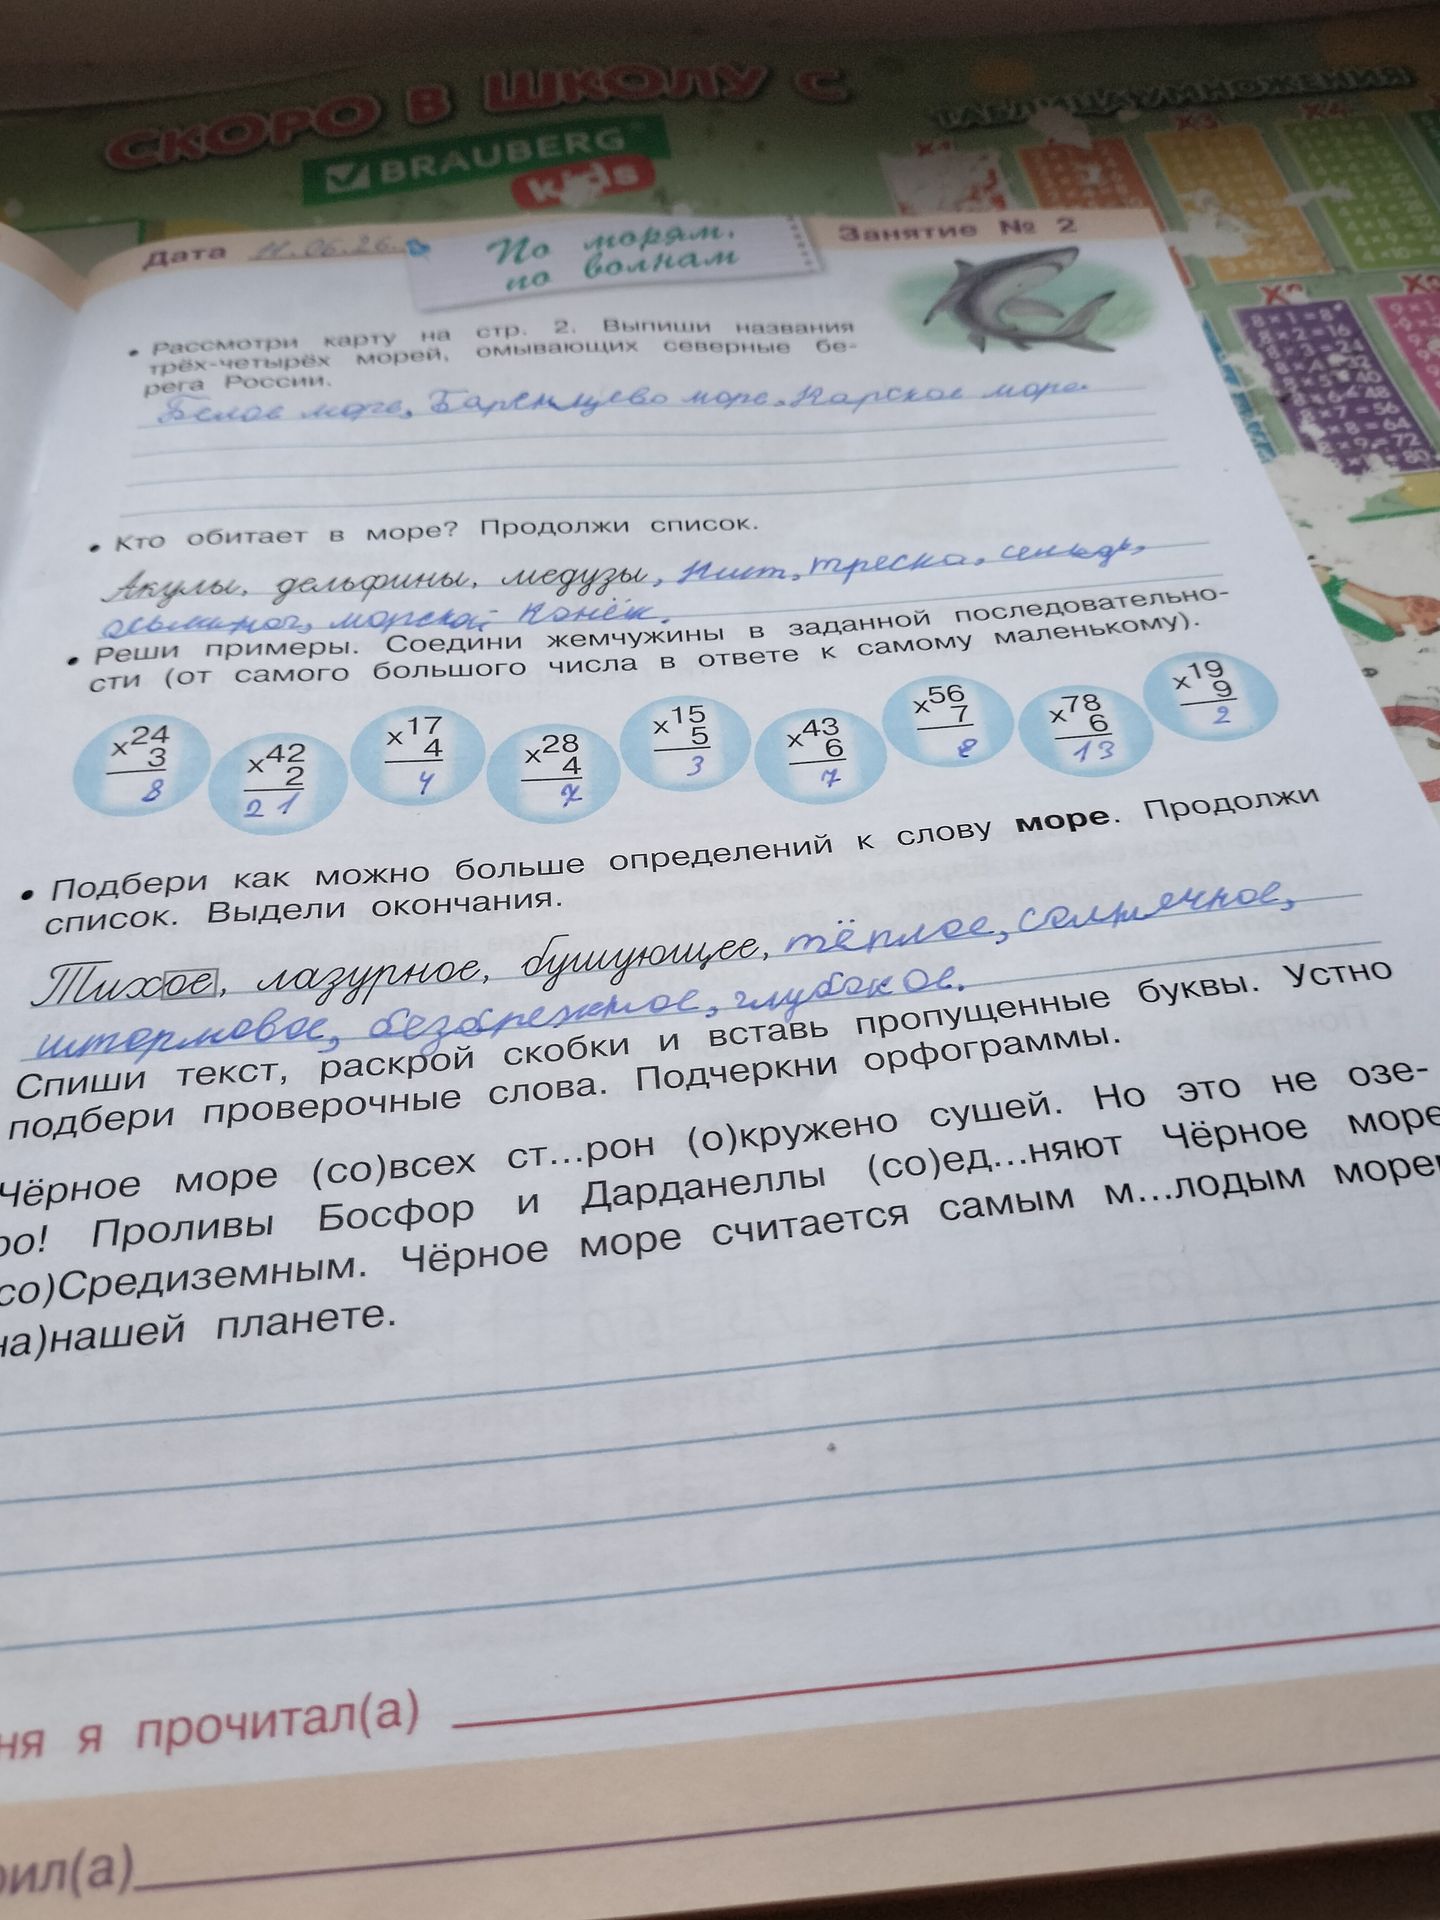 СКОРО В ШКОЛУ С
BRAUBERG
kids
ТАБЛИЦА УМНОЖЕНИЯ
Дата 11.06.26.
По морям,
по волнам
Занятие № 2
• Рассмотри карту на стр. 2. Выпиши названия
трёх-четырёх морей, омывающих северные бе-
рега России.
Белое море, Баренцево море, Карское море.
• Кто обитает в море? Продолжи список.
Акулы, дельфины, медузы, кит, треска, сельдь,
осьминог, морской конёк.
• Реши примеры. Соедини жемчужины в заданной последовательно-
сти (от самого большого числа в ответе к самому маленькому).
x24 3 8
x42 2 21
x17 4 4
x28 4 7
x15 5 3
x43 6 7
x56 7 8
x78 6 13
x19 9 2
• Подбери как можно больше определений к слову море. Продолжи
список. Выдели окончания.
Тихое, лазурное, бушующее, тёплое, солнечное,
штормовое, безбрежное, глубокое.
Спиши текст, раскрой скобки и вставь пропущенные буквы. Устно
подбери проверочные слова. Подчеркни орфограммы.
Чёрное море (со)всех ст...рон (о)кружено сушей. Но это не озе-
ро! Проливы Босфор и Дарданеллы (со)ед...няют Чёрное море
со)Средиземным. Чёрное море считается самым м...лодым морем
на)нашей планете.
ня я прочитал(а)
рил(а)
8×1=8
8×2=16
8×3=24
8×7=56
8×8=64
8×9=72